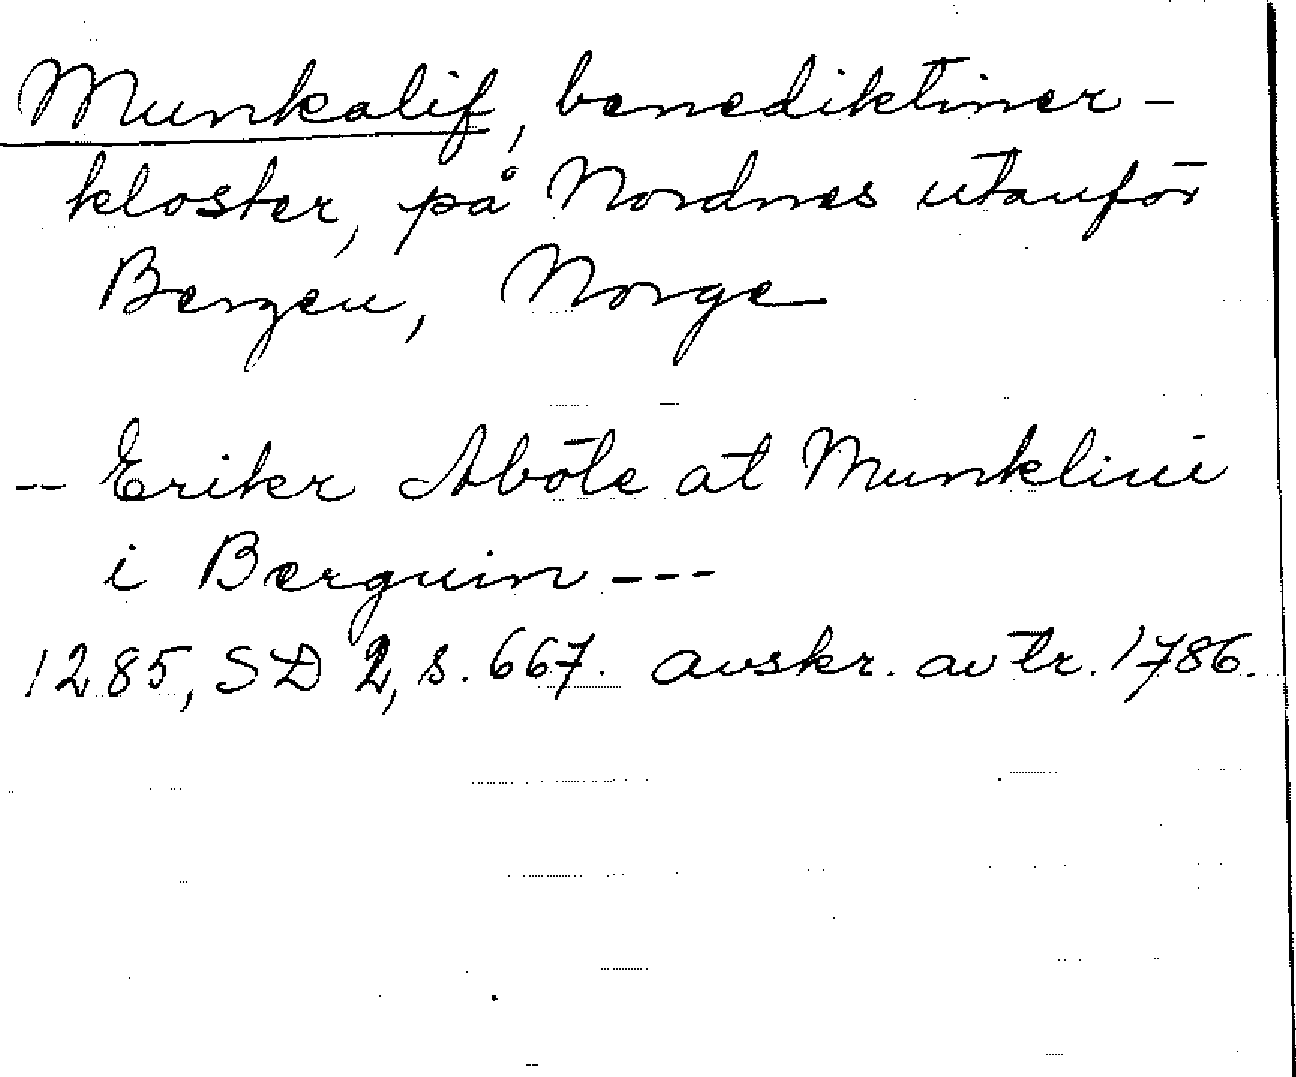 Munkalif, benediktiner-
kloster, på Nordnes utanför
Bergen, Norge
-- Erikr Abóte at Munkliui
i Berguin ---
1285, SD 2, s. 667. avskr. av tr. 1786.